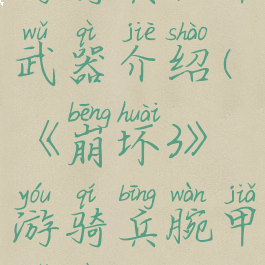 wǔ qì jiè shào
武器介绍(
bēng huài
《崩坏3》
yóu qí bīng wàn jiǎ
游骑兵腕甲